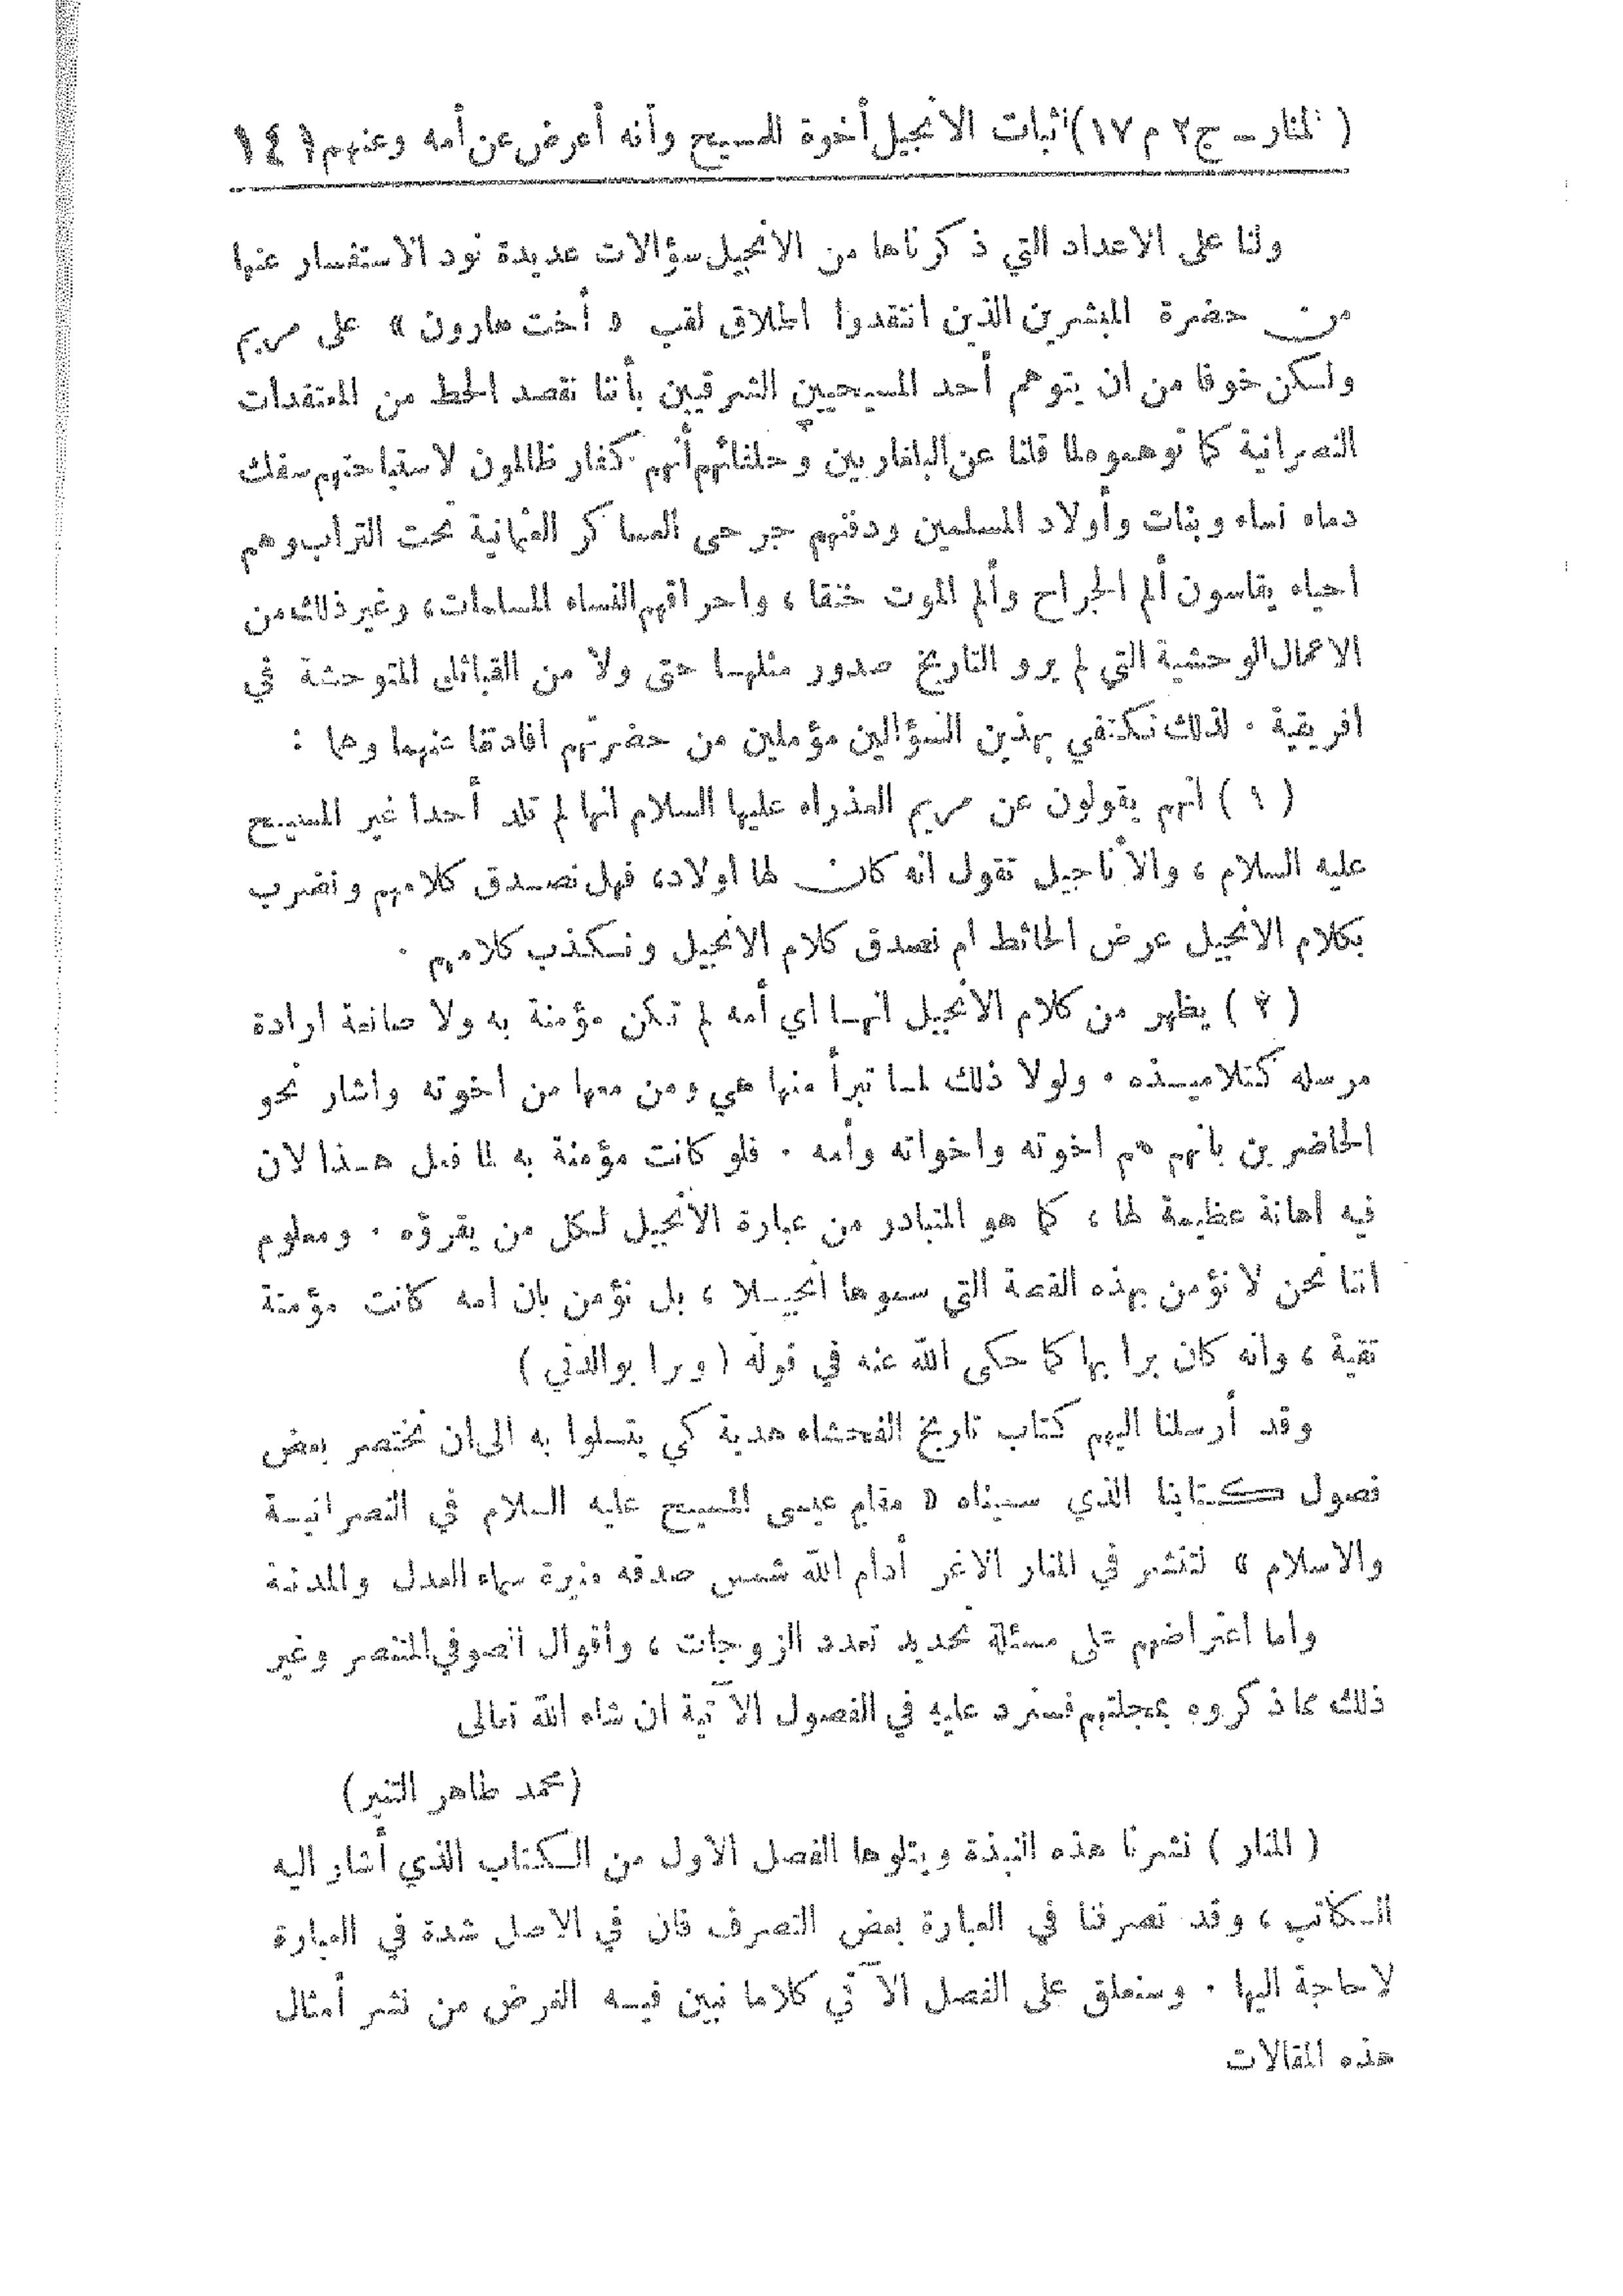 ( المنار ـ ج ٢ م ١٧ ) اثبات الانجيل أخوة للمسيح وأنه أعرض عن أمه وعنهم ١٤١
ولنا على الاعداد التي ذكرناها من الانجيل سؤالات عديدة نود الاستفسار عنها
من حضرة المبشرين الذين انتقدوا اطلاق لقب « أخت هارون » على مريم
ولكن خوفا من ان يتوهم أحد المسيحيين الشرقيين بأننا نقصد الحط من المعتقدات
النصرانية كما توهموه لما قلنا عن البلغاريين وحلفائهم أنهم كفار ظالمون لاستباحتهم سفك
دماء نساء وبنات وأولاد المسلمين ودفنهم جرحى العساكر العثمانية تحت التراب وهم
احياء يقاسون ألم الجراح وألم الموت خنقا ، واحراقهم النساء المسلمات ، وغير ذلك من
الاعمال الوحشية التي لم يرو التاريخ صدور مثلها حتى ولا من القبائل المتوحشة في
افريقية . لذلك نكتفي بهذين السؤالين مؤملين من حضرتهم افادتنا عنهما وهما :
( ١ ) انهم يقولون عن مريم العذراء عليها السلام انها لم تلد أحدا غير المسيح
عليه السلام ، والأناجيل تقول انه كان لها اولاد ، فهل نصدق كلامهم ونضرب
بكلام الانجيل عرض الحائط ام نصدق كلام الانجيل ونكذب كلامهم .
( ٢ ) يظهر من كلام الانجيل انها اي أمه لم تكن مؤمنة به ولا صانعة ارادة
مرسله كتلاميذه . ولولا ذلك لما تبرأ منها هي ومن معها من اخوته واشار نحو
الحاضرين بانهم هم اخوته واخواته وأمه . فلو كانت مؤمنة به لما فعل هذا لان
فيه اهانة عظيمة لها ، كما هو المتبادر من عبارة الانجيل لكل من يقرؤه . ومعلوم
اننا نحن لا نؤمن بهذه القصة التي سموها انجيلا ، بل نؤمن بان امه كانت مؤمنة
تقية ، وانه كان برا بها كما حكى الله عنه في قوله ( وبرا بوالدتي )
وقد أرسلنا اليهم كتاب تاريخ الفحشاء هدية كي يتسلوا به الى ان نختصر بعض
فصول كتابنا الذي سميناه « مقام عيسى المسيح عليه السلام في النصرانية
والاسلام » لتنشر في المنار الاغر أدام الله شمس صدقه منيرة سماء العدل والمدنية
واما اعتراضهم على مسئلة تحديد تعدد الزوجات ، وأقوال الصوفي المتنصر وغير
ذلك مما ذكروه بمجلتهم فسنرد عليه في الفصول الآتية ان شاء الله تعالى
( محمد طاهر التنير )
( المنار ) نشرنا هذه النبذة ويتلوها الفصل الاول من الكتاب الذي أشار اليه
الكاتب ، وقد تصرفنا في العبارة بعض التصرف فان في الاصل شدة في العبارة
لا حاجة اليها . وسنعلق على الفصل الآتي كلاما نبين فيه الغرض من نشر أمثال
هذه المقالات